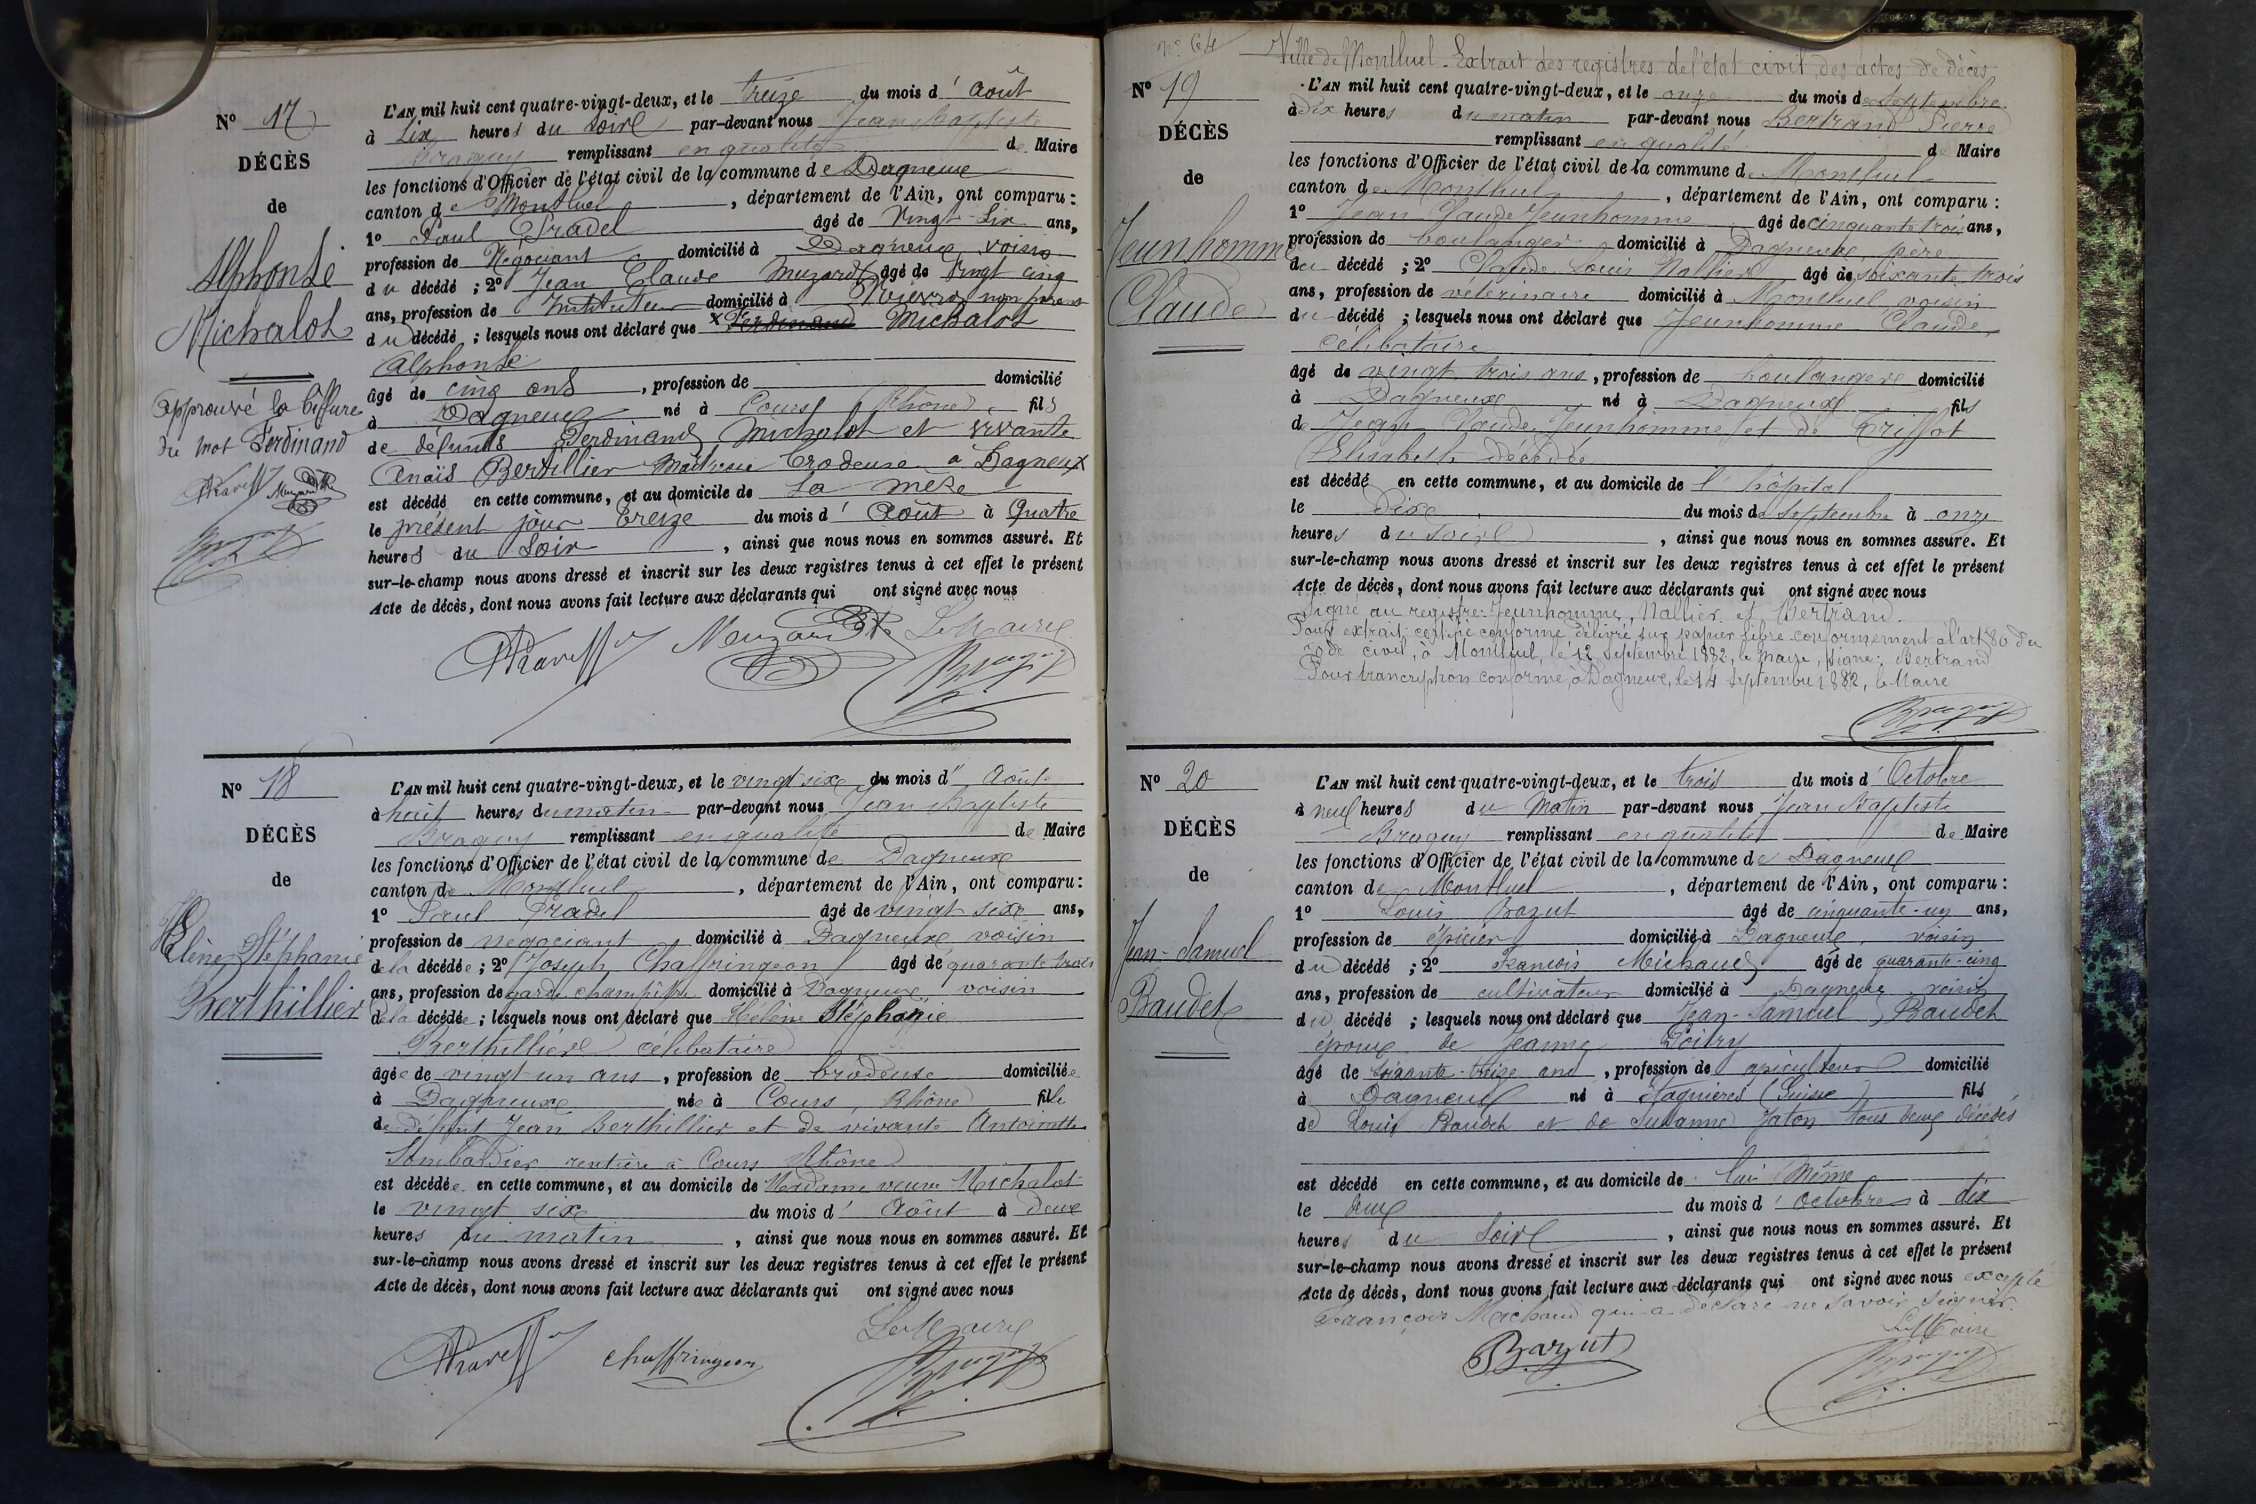 N° 17
DÉCÈS
de
Alphonse
Michalot
approuvé la biffure
du mot Ferdinand
L'AN mil huit cent quatre-vingt-deux, et le treize du mois d'Août
à Six heures du Soir par-devant nous Jean Baptiste
Braguy remplissant en qualité de Maire
les fonctions d'Officier de l'état civil de la commune de Dagneux
canton de Montluel, département de l'Ain, ont comparu :
1° Paul Pradel âgé de Vingt Six ans,
profession de Négociant domicilié à Dagneux, voisin
du décédé ; 2° Jean Claude Muzard âgé de Vingt cinq
ans, profession de Instituteur domicilié à non parent
du décédé ; lesquels nous ont déclaré que Ferdinand Michalot
Alphonse
âgé de cinq ans, profession de domicilié
à Dagneux né à Cours (Rhône) fils
de défunts Ferdinand Michalot et vivante
Anaïs Bertillier Brodeuse à Dagneux
est décédé en cette commune, et au domicile de Sa mère
le présent jour treize du mois d'Août à Quatre
heures du Soir, ainsi que nous nous en sommes assuré. Et
sur-le-champ nous avons dressé et inscrit sur les deux registres tenus à cet effet le présent
Acte de décès, dont nous avons fait lecture aux déclarants qui ont signé avec nous
Muzard Le Maire
N° 18
DÉCÈS
de
Hélène Stéphanie
Berthillier
L'AN mil huit cent quatre-vingt-deux, et le vingt six du mois d'Août
à huit heures du matin par-devant nous Jean Baptiste
Braguy remplissant en qualité de Maire
les fonctions d'Officier de l'état civil de la commune de Dagneux
canton de Montluel, département de l'Ain, ont comparu :
1° Paul Pradel âgé de vingt six ans,
profession de négociant domicilié à Dagneux voisin
de la décédée ; 2° Joseph Chaffringeon âgé de quarante trois
ans, profession de garde champêtre domicilié à Dagneux voisin
de la décédée ; lesquels nous ont déclaré que Hélène Stéphanie
Berthillier célibataire
âgée de vingt un ans, profession de brodeuse domiciliée
à Dagneux née à Cours, Rhône fille
de défunt Jean Berthillier et de vivante Antoinette
Lombardier rentière à Cours Rhône
est décédée en cette commune, et au domicile de Madame veuve Michalot
le vingt six du mois d'Août à deux
heures du matin, ainsi que nous nous en sommes assuré. Et
sur-le-champ nous avons dressé et inscrit sur les deux registres tenus à cet effet le présent
Acte de décès, dont nous avons fait lecture aux déclarants qui ont signé avec nous
Le Maire
Chaffringeon
N° 64 Ville de Montluel - Extrait des registres de l'état civil, des actes de décès
N° 19
DÉCÈS
de
Jeunhomme
Claude
L'AN mil huit cent quatre-vingt-deux, et le onze du mois de Septembre
à dix heures du matin par-devant nous Bertrand Pierre
remplissant en qualité de Maire
les fonctions d'Officier de l'état civil de la commune de Montluel
canton de Montluel, département de l'Ain, ont comparu :
1° Jean Claude Jeunhomme âgé de cinquante trois ans,
profession de boulanger domicilié à Dagneux, père
du décédé ; 2° Claude Louis Nallier âgé de soixante trois
ans, profession de vétérinaire domicilié à Montluel, voisin
du décédé ; lesquels nous ont déclaré que Jeunhomme Claude,
célibataire
âgé de vingt trois ans, profession de boulanger domicilié
à Dagneux né à Dagneux fils
de Jean Claude Jeunhomme et de Trissot
Elisabeth décédée
est décédé en cette commune, et au domicile de l'hôpital
le dix du mois de Septembre à onze
heures du soir, ainsi que nous nous en sommes assuré. Et
sur-le-champ nous avons dressé et inscrit sur les deux registres tenus à cet effet le présent
Acte de décès, dont nous avons fait lecture aux déclarants qui ont signé avec nous
Signé au registre : Jeunhomme, Nallier et Bertrand.
Pour extrait certifié conforme délivré sur papier libre conformément à l'art 80 du
code civil, à Montluel, le 12 Septembre 1882, le maire, signé : Bertrand
Pour transcription conforme, à Dagneux, le 14 septembre 1882, le Maire
N° 20
DÉCÈS
de
Jean-Samuel
Baudet
L'AN mil huit cent quatre-vingt-deux, et le trois du mois d'Octobre
à neuf heures du Matin par-devant nous Jean Baptiste
Braguy remplissant en qualité de Maire
les fonctions d'Officier de l'état civil de la commune de Dagneux
canton de Montluel, département de l'Ain, ont comparu :
1° Louis Bazut âgé de cinquante-un ans,
profession de épicier domicilié à Dagneux, voisin
du décédé ; 2° François Michaud âgé de quarante-cinq
ans, profession de cultivateur domicilié à Dagneux voisin
du décédé ; lesquels nous ont déclaré que Jean-Samuel Baudet
époux de Jeanne Loitry
âgé de soixante-treize ans, profession de apiculteur domicilié
à Dagneux né à Etagnières (Suisse) fils
de Louis Baudet et de Susanne Jaton tous deux décédés
est décédé en cette commune, et au domicile de lui Même
le deux du mois d'octobre à dix
heures du Soir, ainsi que nous nous en sommes assuré. Et
sur-le-champ nous avons dressé et inscrit sur les deux registres tenus à cet effet le présent
Acte de décès, dont nous avons fait lecture aux déclarants qui ont signé avec nous excepté
François Michaud qui a déclaré ne savoir signer.
Le Maire
Bazut